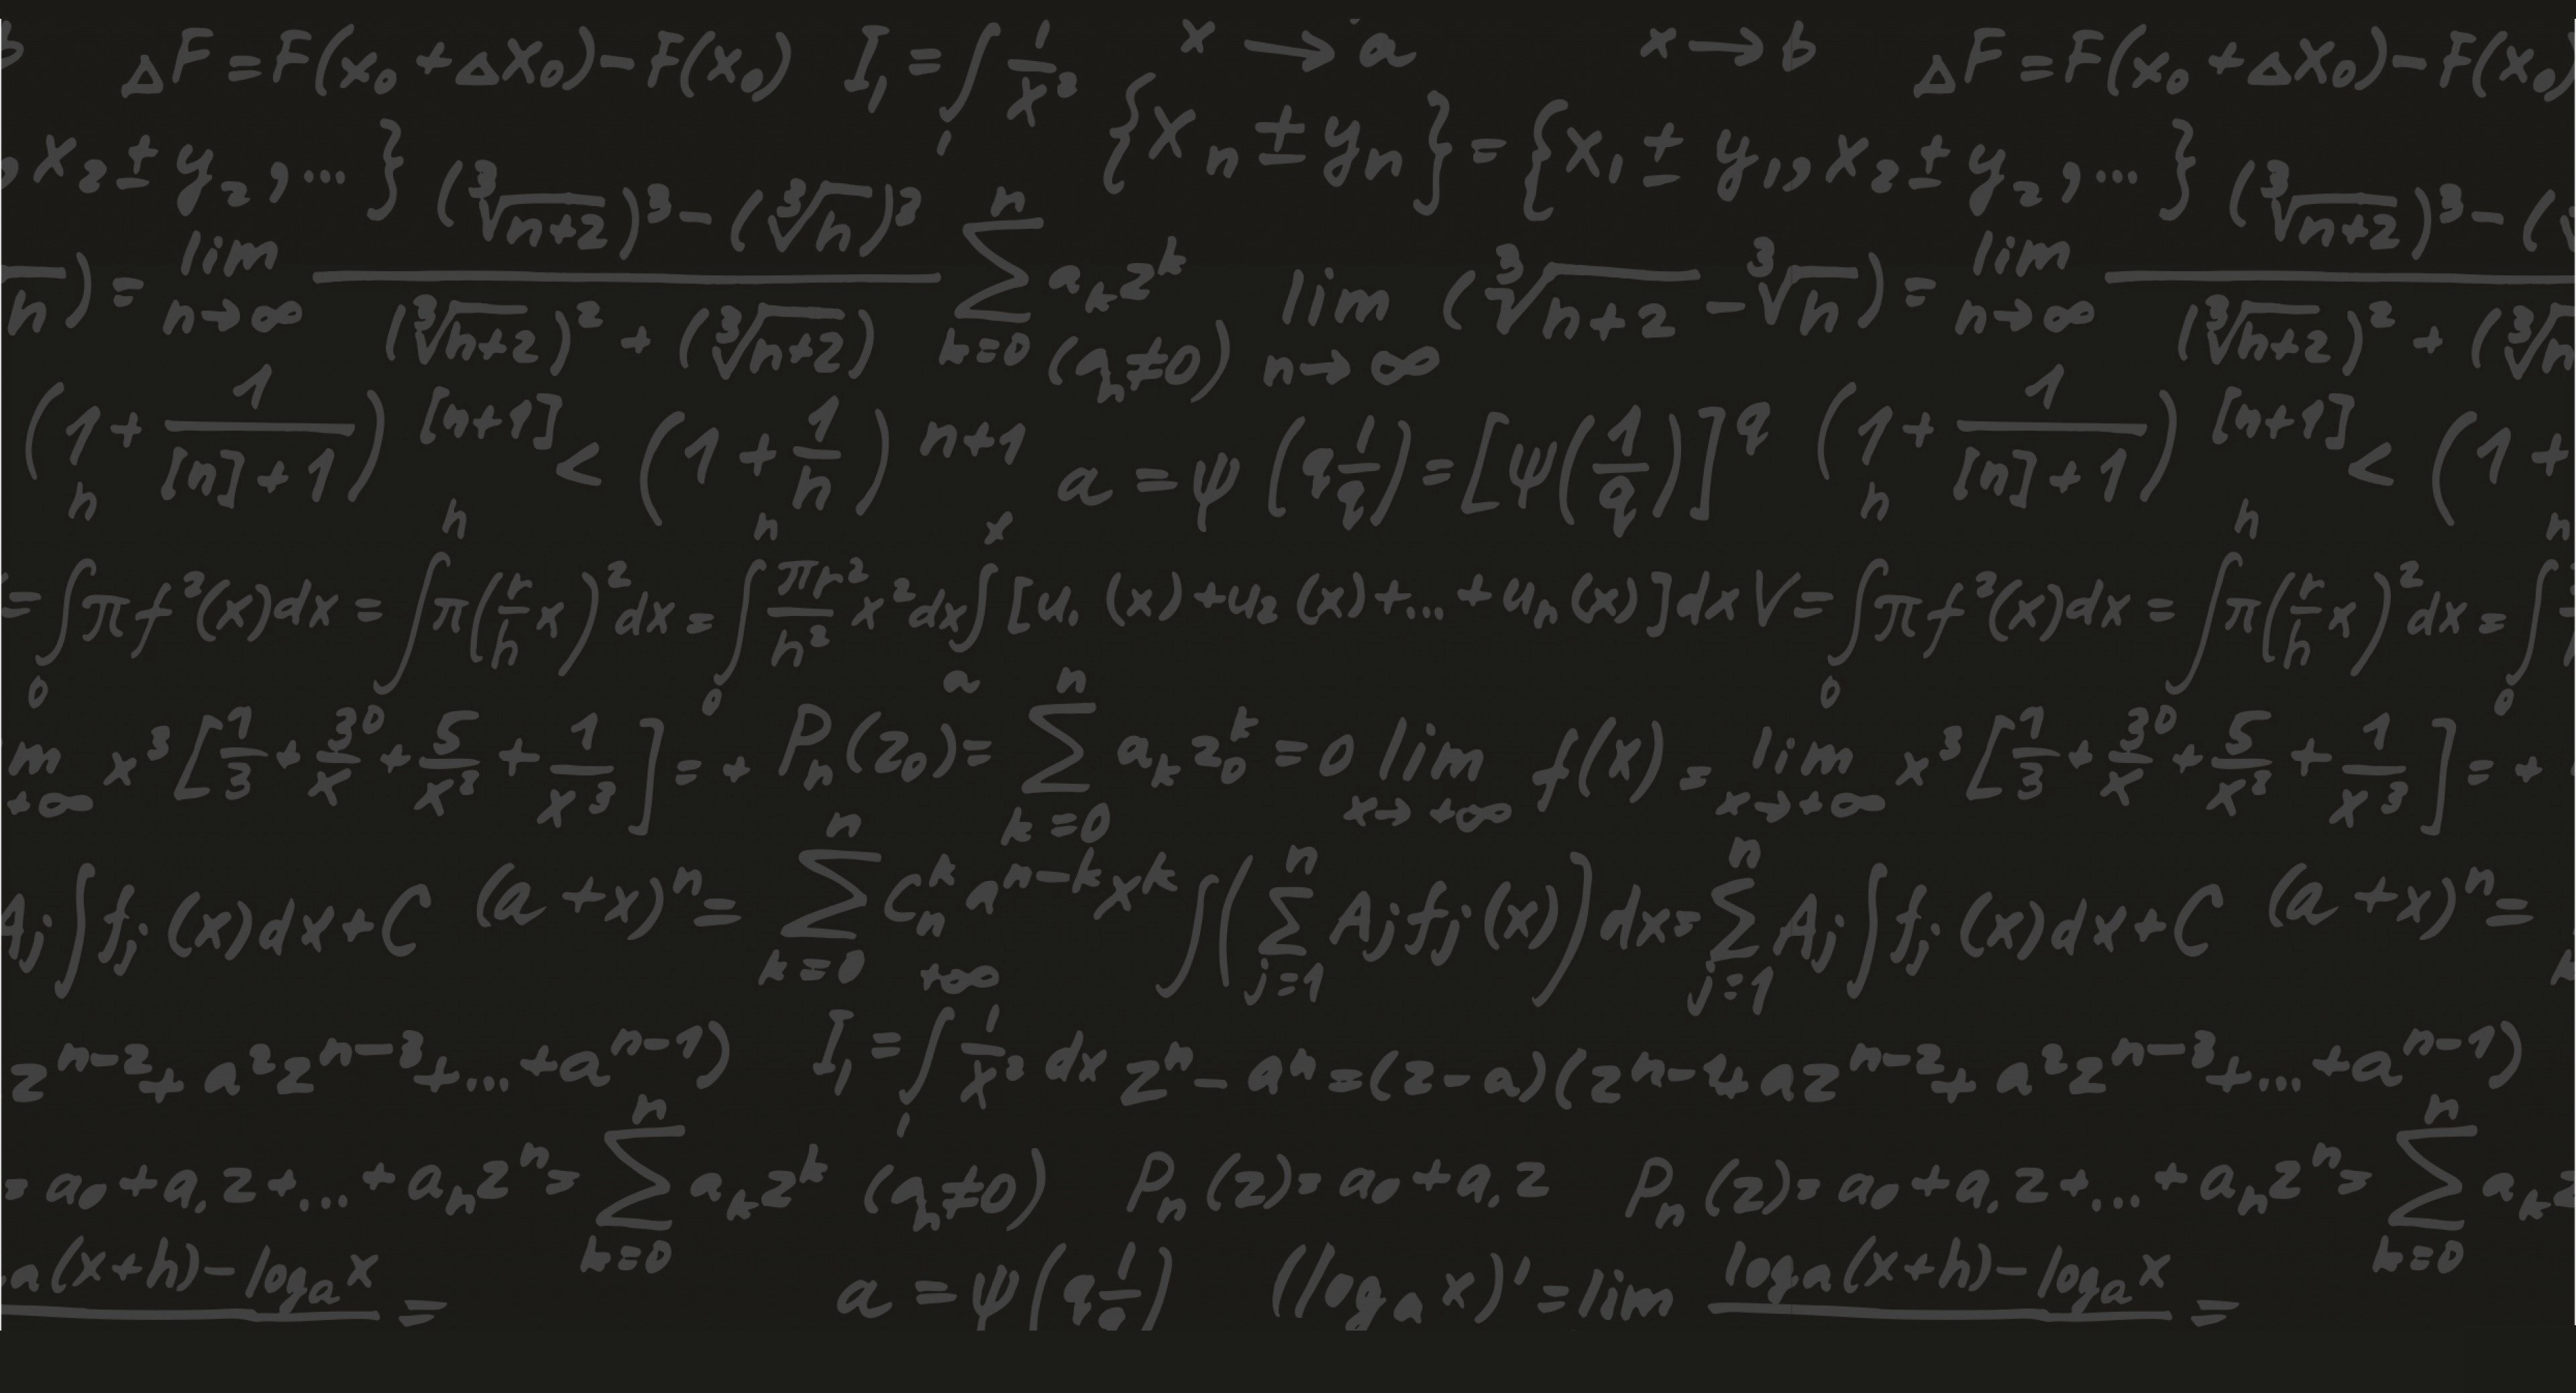 b ΔF = F(x₀ + Δx₀) - F(x₀) I₁ = ∫₁ 1/x³ x → a x → b ΔF = F(x₀ + Δx₀) - F(x₀)
, x₂ ± y₂, ... } {xₙ ± yₙ} = {x₁ ± y₁, x₂ ± y₂, ... }
n) = lim n→∞ ((∛n+2)³ - (∛n)³) / ((∛n+2)² + (∛n+2)) ∑ k=0 n aₖzᵏ (aₙ≠0) lim n→∞ (∛n+2 - ∛n) = lim n→∞ ((∛n+2)³ - ( / ((∛n+2)² + (∛n
(1 + 1/([n]+1))^[n+1] < (1 + 1/n)^n+1 a = ψ(q 1/q) = [ψ(1/q)]^q (1 + 1/([n]+1))^[n+1] < (1 +
= ∫₀ʰ πf²(x)dx = ∫ʰ π(r/h x)²dx = ∫₀ʰ πr²/h² x²dx ∫ₐˣ [u₁(x) + u₂(x) + ... + uₙ(x)]dx V = ∫₀ʰ πf²(x)dx = ∫ʰ π(r/h x)²dx = ∫₀ʰ
m +∞ x³ [1/3 + 3⁰/x + 5/x² + 1/x³] = + Pₙ(z₀) = ∑ k=0 n aₖz₀ᵏ = 0 lim x→+∞ f(x) = lim x→+∞ x³ [1/3 + 3⁰/x + 5/x² + 1/x³] = +
Aⱼ ∫fⱼ(x)dx + C (a + x)ⁿ = ∑ k=0 n Cₙᵏ aⁿ⁻ᵏxᵏ ∫(∑ j=1 n Aⱼfⱼ(x))dx = ∑ j=1 n Aⱼ ∫fⱼ(x)dx + C (a + x)ⁿ =
zⁿ⁻² + a²zⁿ⁻³ + ... + aⁿ⁻¹) I₁ = ∫₁ +∞ 1/x³ dx zⁿ - aⁿ = (z - a)(zⁿ⁻¹ + azⁿ⁻² + a²zⁿ⁻³ + ... + aⁿ⁻¹)
= a₀ + a₁z + ... + aₙzⁿ = ∑ k=0 n aₖzᵏ (aₙ≠0) Pₙ(z) = a₀ + a₁z Pₙ(z) = a₀ + a₁z + ... + aₙzⁿ = ∑ k=0 n aₖz
a(x+h) - logₐx = a = ψ(q 1/q) (logₐx)' = lim loga(x+h) - logₐx =